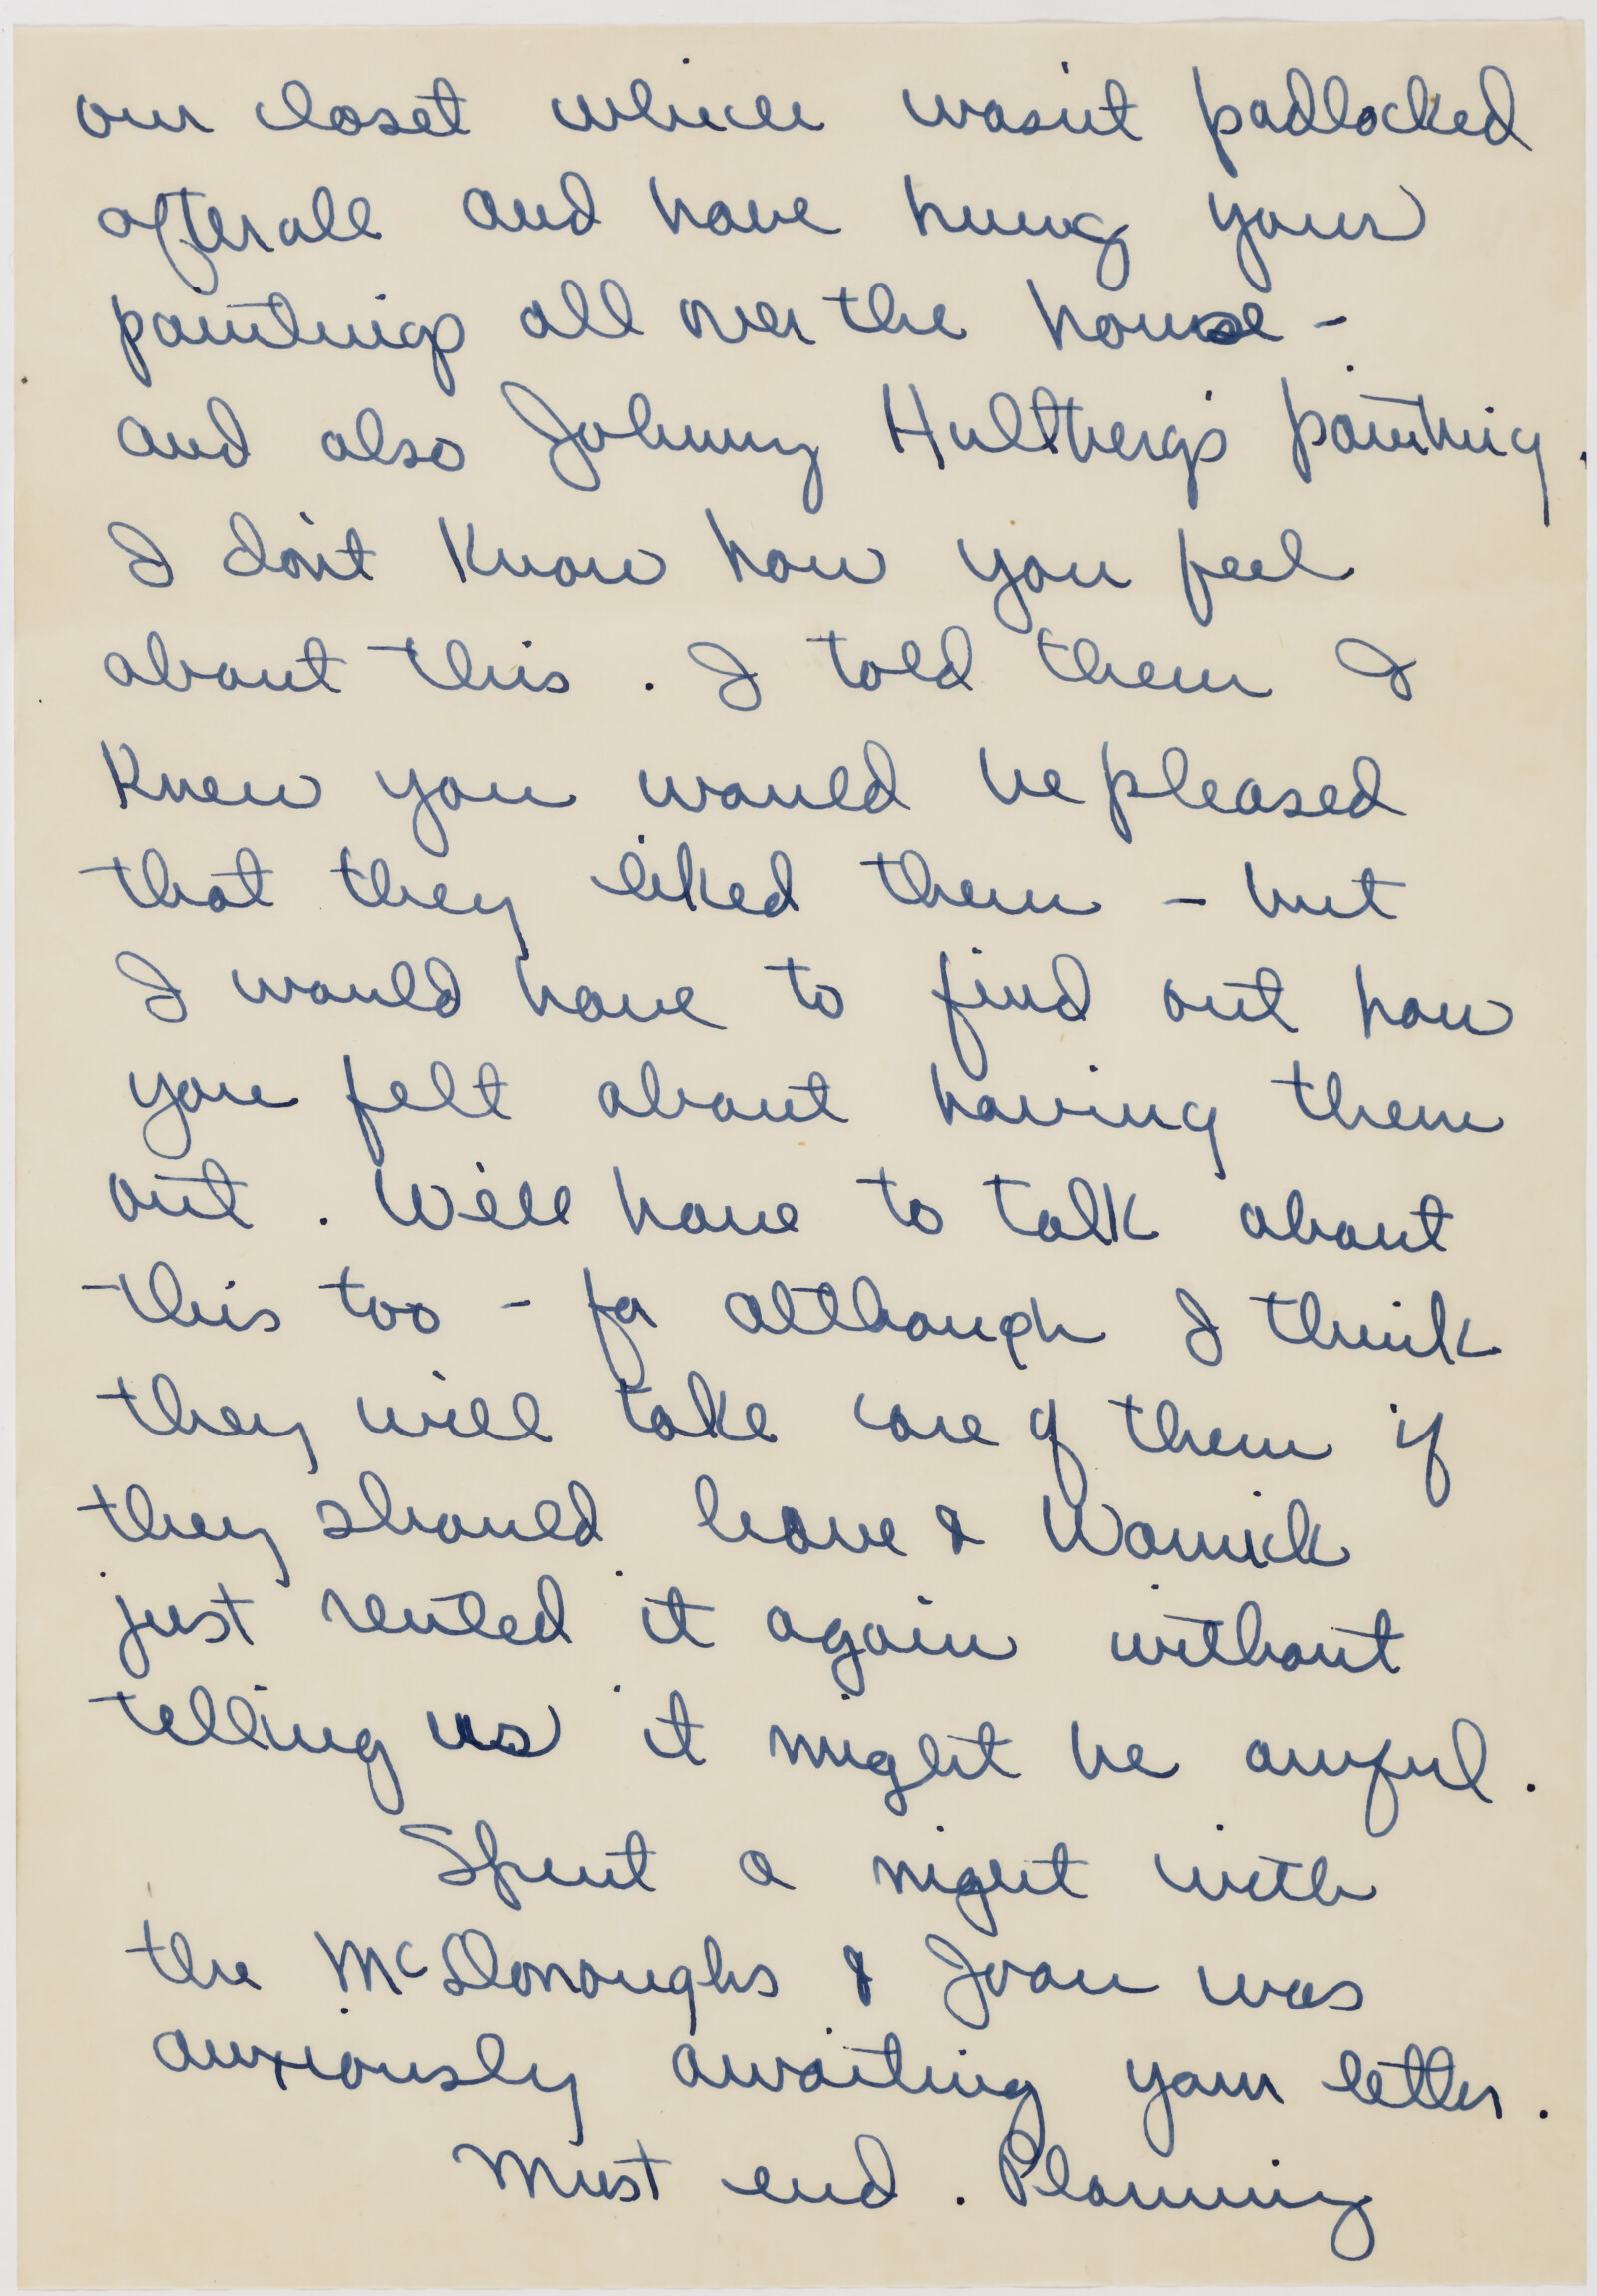 our closet which wasn't padlocked
afterall and have hung your
paintings all over the house -
and also Johnny Hultberg's painting.
I don't know how you feel
about this. I told them I
knew you would be pleased
that they liked them - but
I would have to find out how
you felt about having them
out. Will have to talk about
this too - for although I think
they will take care of them if
they should leave & Warnick
just rented it again without
telling us it might be awful.
Spent a night with
the McDonoughs & Joan was
anxiously awaiting your letter.
Must end. Planning